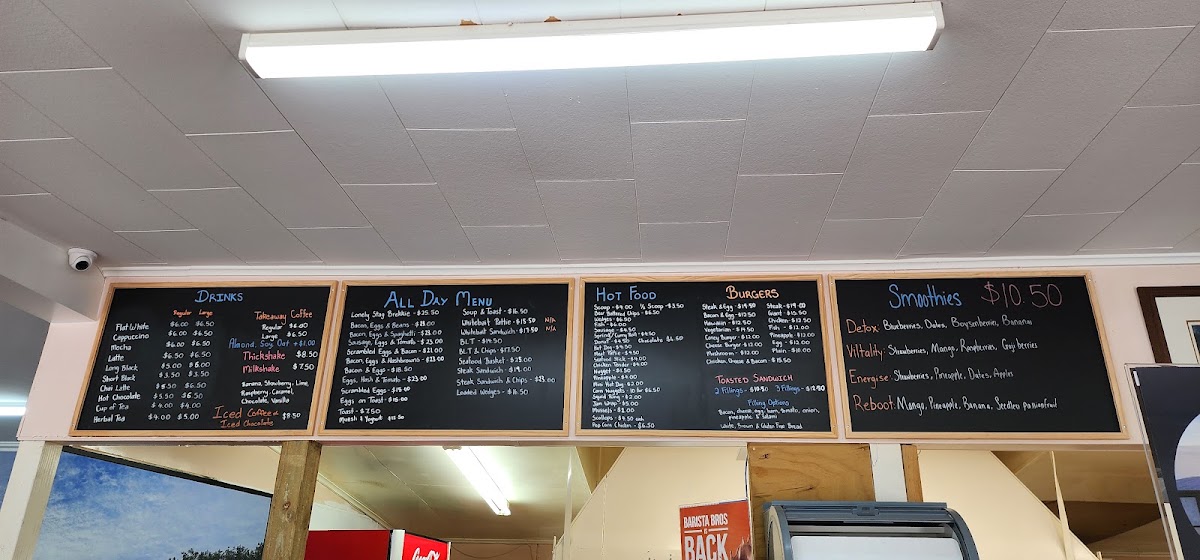 DRINKS
Regular Large
Flat White $6.00 $6.50
Cappuccino $6.00 $6.50
Mocha $6.00 $6.50
Latte $6.50 $6.50
Long Black $5.00
Short Black $3.50 $3.50
Chai Latte $6.50
Hot Chocolate $5.50 $6.50
Cup of Tea $4.00 $4.00
Herbal Tea $4.00 $5.00
Takeaway Coffee
Regular $6.00
Large $6.50
Almond, Soy, Oat +$1.00
Thickshake $8.50
Milkshake $7.50
Banana, Strawberry, Lime,
Raspberry, Caramel,
Chocolate, Vanilla
Iced Coffee &
Iced Chocolate $8.50
ALL DAY MENU
Lonely Stag Brekkie - $25.50
Bacon, Eggs & Beans - $23.00
Bacon, Eggs & Spaghetti - $23.00
Sausage, Eggs & Tomato - $23.00
Scrambled Eggs & Bacon - $21.00
Bacon, Eggs & Hashbrowns - $21.00
Bacon & Eggs - $18.50
Eggs, Hash & Tomato - $23.00
Scrambled Eggs - $15.00
Eggs on Toast - $15.00
Toast - $7.50
Muesli & Yogurt
Soup & Toast - $16.50
Whitebait Pattie - $15.50 N/A
Whitebait Sandwich - $17.50 N/A
B.L.T - $14.50
B.L.T & Chips - $17.50
Seafood Basket - $23.00
Steak Sandwich - $19.00
Steak Sandwich & Chips - $23.00
Loaded Wedges - $16.50
HOT FOOD
Scoop - $4.00 ½ Scoop - $3.50
Beer Battered Chips - $6.50
Wedges - $6.50
Fish - $6.00
Hot Dog - $4.50
Chocolate $6.50
Mini Hot Dog - $2.00
Corn Nuggets 10 for $6.50
Squid Ring - $2.00
Mussels - $2.00
Pop Corn Chicken - $6.50
BURGERS
Steak & Egg - $19.50
Bacon & Egg - $12.50
Hawaiian - $12.50
Vegetarian - $14.50
Cheese Burger - $12.00
Mushroom - $12.00
Chicken, Cheese & Bacon - $15.50
Steak - $17.00
Giant - $15.50
Chicken - $12.50
Fish - $12.00
Pineapple - $12.00
Egg - $12.00
Plain - $10.00
TOASTED SANDWICH
2 Fillings - $10.50 3 Fillings - $12.50
Filling Options
Bacon, cheese, egg, ham, tomato, onion,
pineapple & Salami
White, Brown & Gluten Free Bread
Smoothies $10.50
Detox: Blueberries, Dates, Boysenberrie, Banana
Viltality: Strawberries, Mango, Raspberries, Goji berries
Energise: Strawberries, Pineapple, Dates, Apples
Reboot: Mango, Pineapple, Banana, Seedless passionfruit
BARISTA BROS
BACK